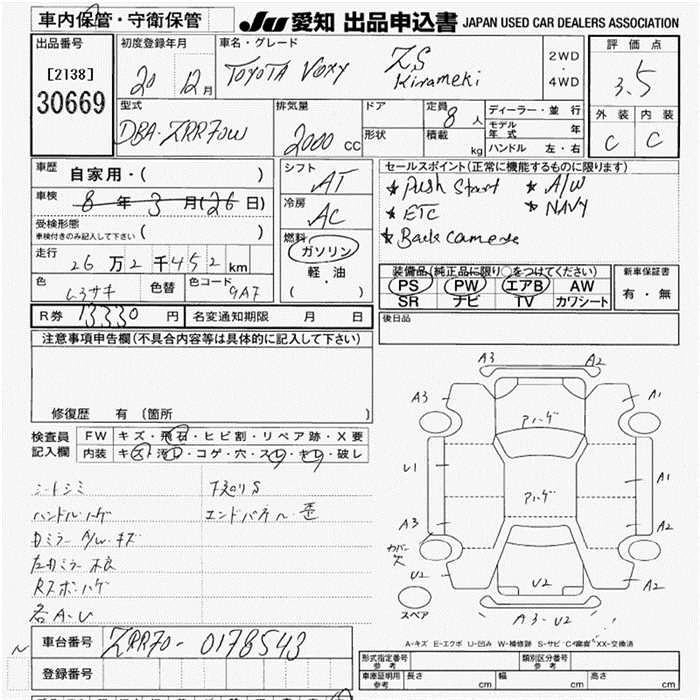 車内保管・守衛保管
JU 愛知 出品申込書 JAPAN USED CAR DEALERS ASSOCIATION
出品番号
[2138]
30669
初度登録年月
20 12月
車名・グレード
TOYOTA VOXY ZS
Kirameki
2WD
・
4WD
評価点
3.5
外装 内装
C C
型式
DBA-ZRR70W
排気量
2000 CC
ドア
形状
定員
8人
積載
kg
ディーラー・並行
モデル年式 年
ハンドル 左・右
車歴
自家用・( )
車検
8年3月(26日)
受検形態
車検付きのみ記入して下さい ( )
走行
26万2千452km
色
ムラサキ
色替
色コード
9A7
シフト
AT
冷房
AC
燃料
ガソリン
軽・油
( )
セールスポイント(正常に機能するものに限ります)
★ Push Start ★ A/W
★ ETC ★ NAVY
★ Back camera
装備品(純正品に限り○をつけてください)
PS PW エアB AW
SR ナビ TV カワシート
新車保証書
有・無
R券 13330円
名変通知期限 月 日
後日品
注意事項申告欄(不具合内容等は具体的に記入して下さい)
修復歴 有(箇所 )
検査員
記入欄
FW キズ・飛石・ヒビ割・リペア跡・X要
内装 キズ・汚レ・コゲ・穴・スレ・キレ・破レ
シートシミ
ハンドル・ハゲ
エンドパネル・歪
Dミラー A/W・キズ
左カミラー 不良
Rスポ・ハゲ
各A・U
A3 A2
A3 A1
アハ・ゲ
U1 A1
アハ・ゲ
A3 A2
カバー欠
U2 U2 A2
スペア
A3-U2
A-キズ E-エクボ U-凹み W-補修跡 S-サビ C-腐蝕 XX-交換済
車台番号
ZRR70-0178543
登録番号
形式指定番号
参考
類別区分番号
参考
車庫証明用
参考
長さ cm
幅 cm
高さ cm